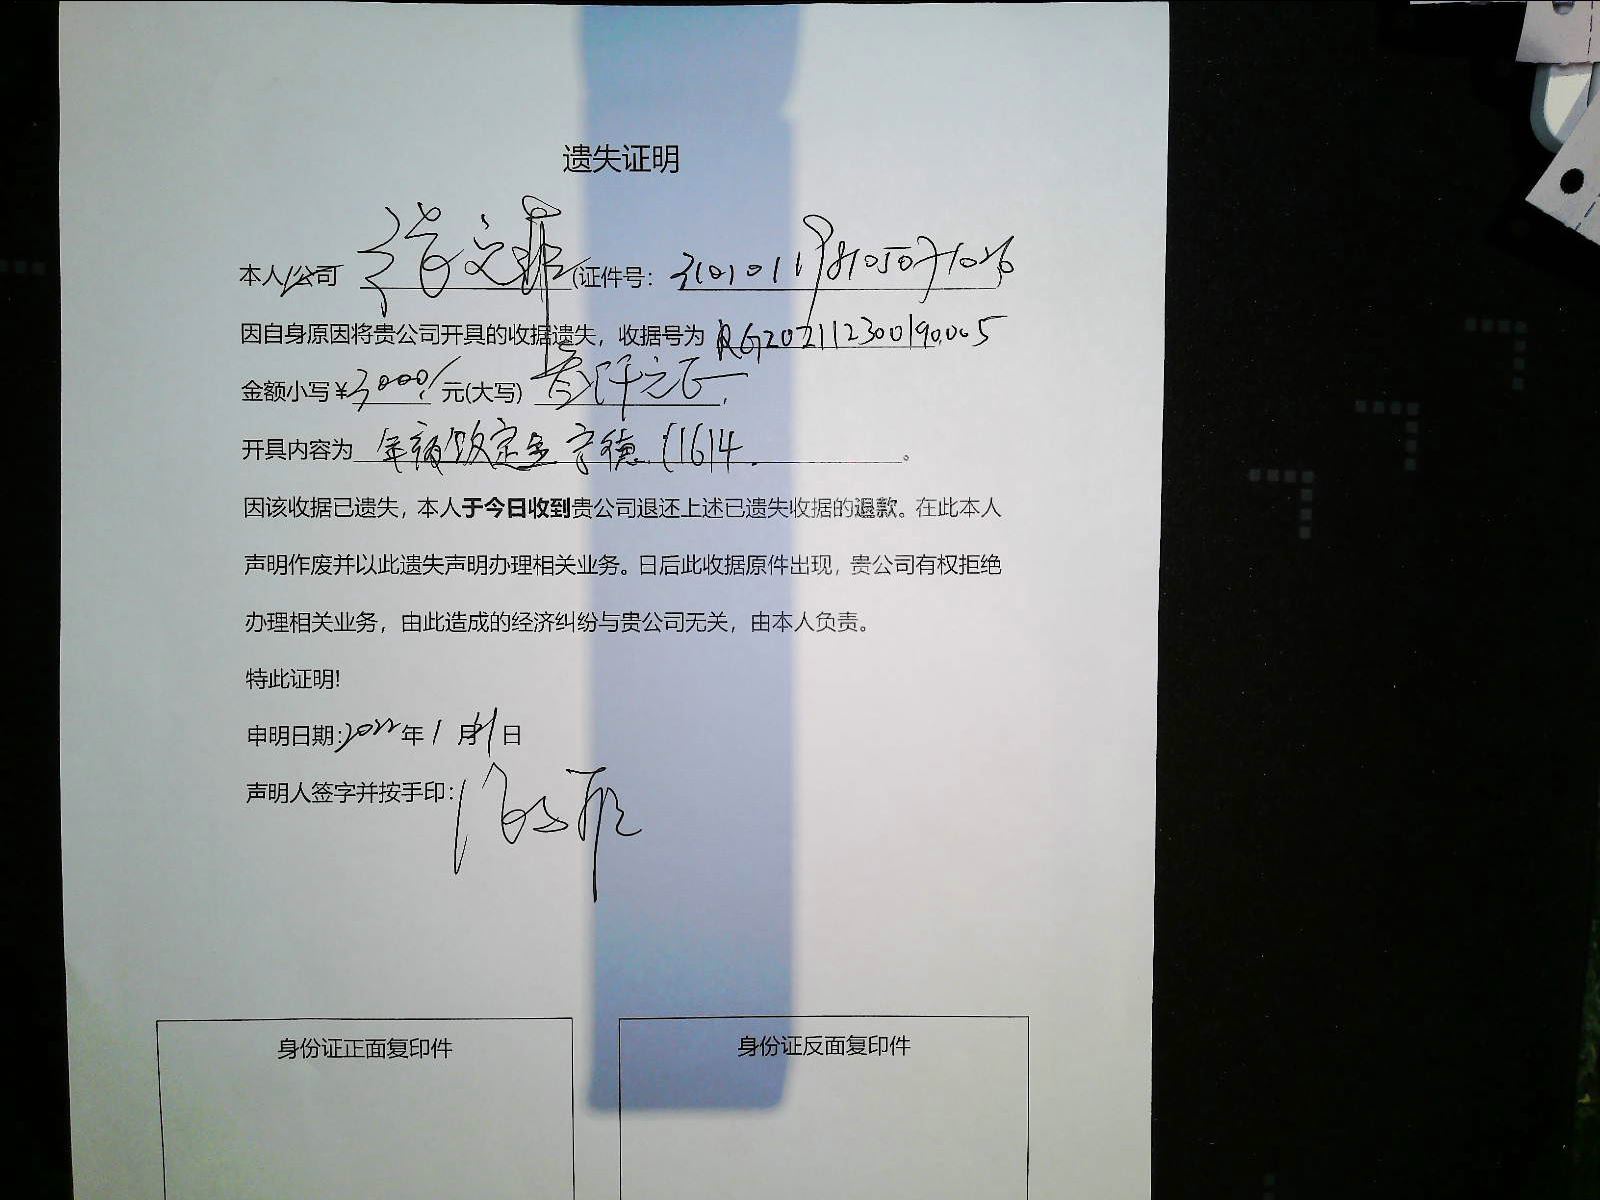 遗失证明
本人/公司 (证件号: 310101198105071026
因自身原因将贵公司开具的收据遗失，收据号为 RG202112300190005
金额小写¥3000/元(大写) 叁仟元正
开具内容为 定金 1614
因该收据已遗失，本人于今日收到贵公司退还上述已遗失收据的退款。在此本人
声明作废并以此遗失声明办理相关业务。日后此收据原件出现，贵公司有权拒绝
办理相关业务，由此造成的经济纠纷与贵公司无关，由本人负责。
特此证明!
申明日期:2022年1月21日
声明人签字并按手印:
身份证正面复印件
身份证反面复印件